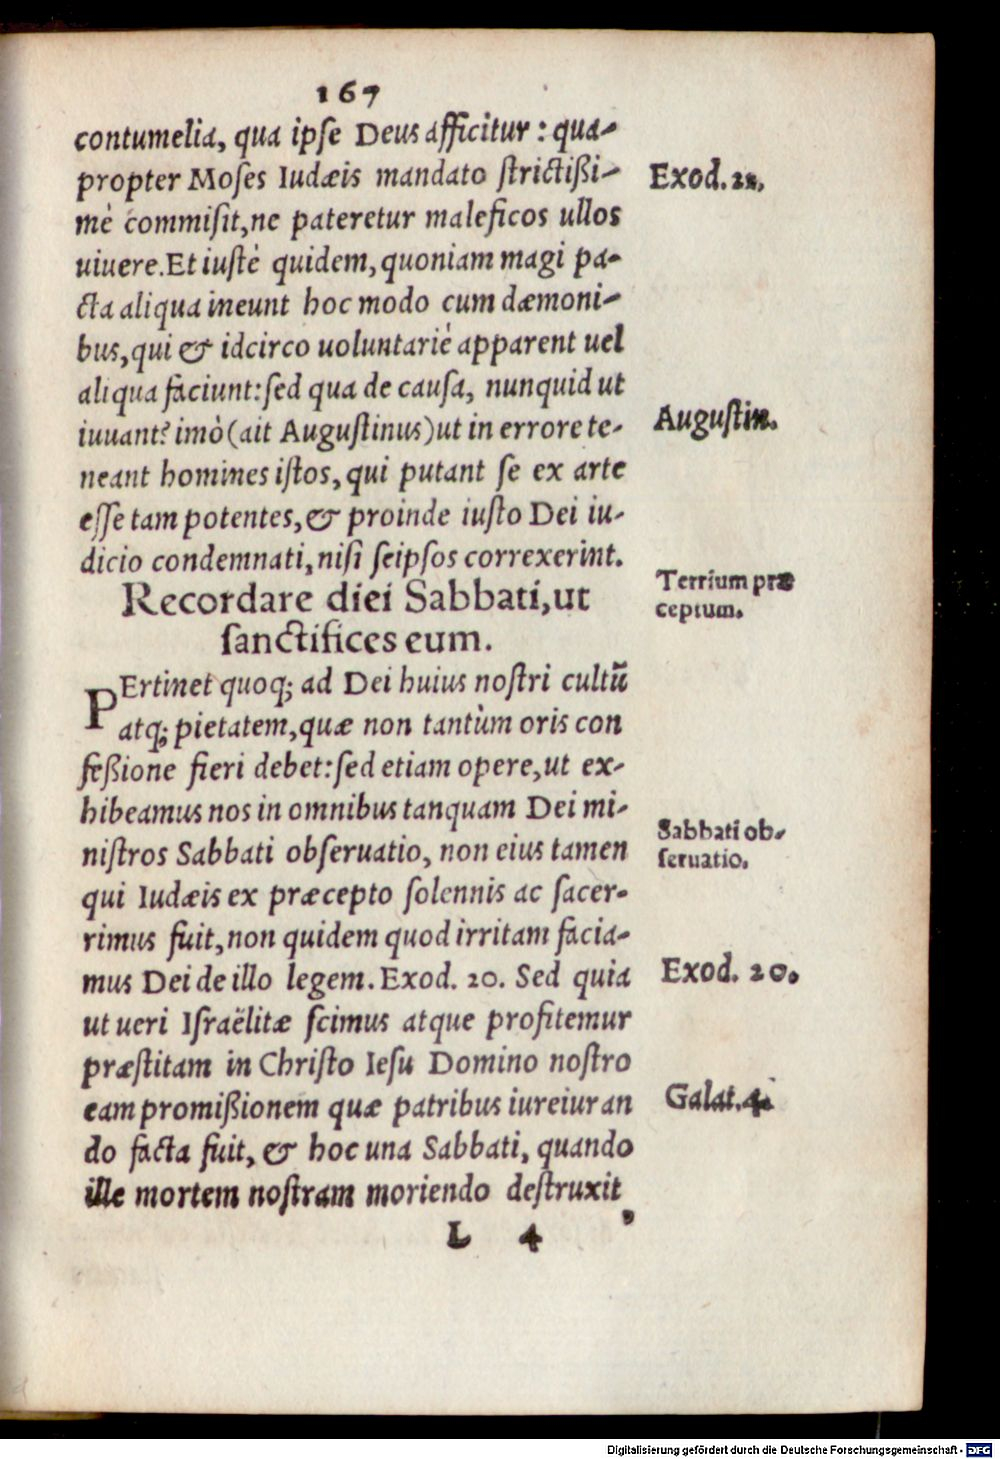 167
contumelia, qua ipſe Deus afficitur : qua-
propter Moſes Iudæis mandato ſtrictißi-
mè commiſit, ne pateretur maleficos ullos
uiuere. Et iuſtè quidem, quoniam magi pa-
cta aliqua ineunt hoc modo cum dæmoni-
bus, qui & idcirco uoluntariè apparent uel
aliqua faciunt: ſed qua de cauſa, nunquid ut
iuuant? imò (ait Auguſtinus) ut in errore te-
neant homines iſtos, qui putant ſe ex arte
eſſe tam potentes, & proinde iuſto Dei iu-
dicio condemnati, niſi ſeipſos correxerint.
Recordare diei Sabbati, ut
ſanctifices eum.
PErtinet quoq; ad Dei huius noſtri cultũ
atq; pietatem, quæ non tantùm oris con
feßione fieri debet: ſed etiam opere, ut ex-
hibeamus nos in omnibus tanquam Dei mi-
niſtros Sabbati obſeruatio, non eius tamen
qui Iudæis ex præcepto ſolennis ac ſacer-
rimus fuit, non quidem quod irritam facia-
mus Dei de illo legem. Exod. 20. Sed quia
ut ueri Iſraëlitæ ſcimus atque profitemur
præſtitam in Chriſto Ieſu Domino noſtro
eam promißionem quæ patribus iureiuran
do facta fuit, & hoc una Sabbati, quando
ille mortem noſtram moriendo deſtruxit,
L 4
Exod. 22.
Auguſtin.
Terrium præ
ceptum.
Sabbati ob-
ſeruatio.
Exod. 20.
Galat. 4.
Digitalisierung gefördert durch die Deutsche Forschungsgemeinschaft - DFG